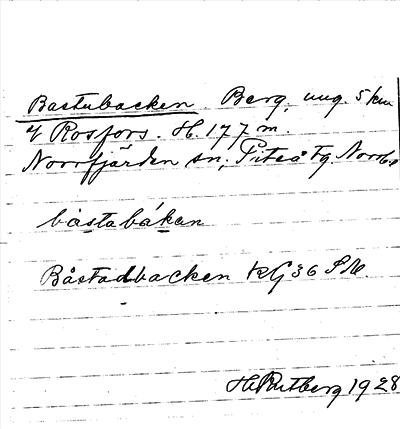 Bastubacken. Berg, ung. 5 km
V Rosfors. H. 177 m.
Norrfjärden sn, Piteå tg. Norrb.
båstabákan
Båstadbacken KG 36 SM.
H. Rutberg 1928